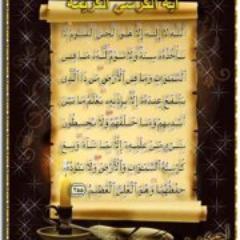 آية الكرسي الكريمة
اللَّهُ لَا إِلَٰهَ إِلَّا هُوَ الْحَيُّ الْقَيُّومُ لَا
تَأْخُذُهُ سِنَةٌ وَلَا نَوْمٌ لَّهُ مَا فِي
السَّمَاوَاتِ وَمَا فِي الْأَرْضِ مَن ذَا الَّذِي
يَشْفَعُ عِندَهُ إِلَّا بِإِذْنِهِ يَعْلَمُ مَا بَيْنَ
أَيْدِيهِمْ وَمَا خَلْفَهُمْ وَلَا يُحِيطُونَ
بِشَيْءٍ مِّنْ عِلْمِهِ إِلَّا بِمَا شَاءَ وَسِعَ
كُرْسِيُّهُ السَّمَاوَاتِ وَالْأَرْضَ وَلَا يَئُودُهُ
حِفْظُهُمَا وَهُوَ الْعَلِيُّ الْعَظِيمُ ٢٥٥